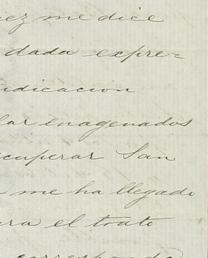 ez me dice
dada expre-
ndicacion
lar enagenados
cuperar San
me ha llegado
ara el trato
corresponda